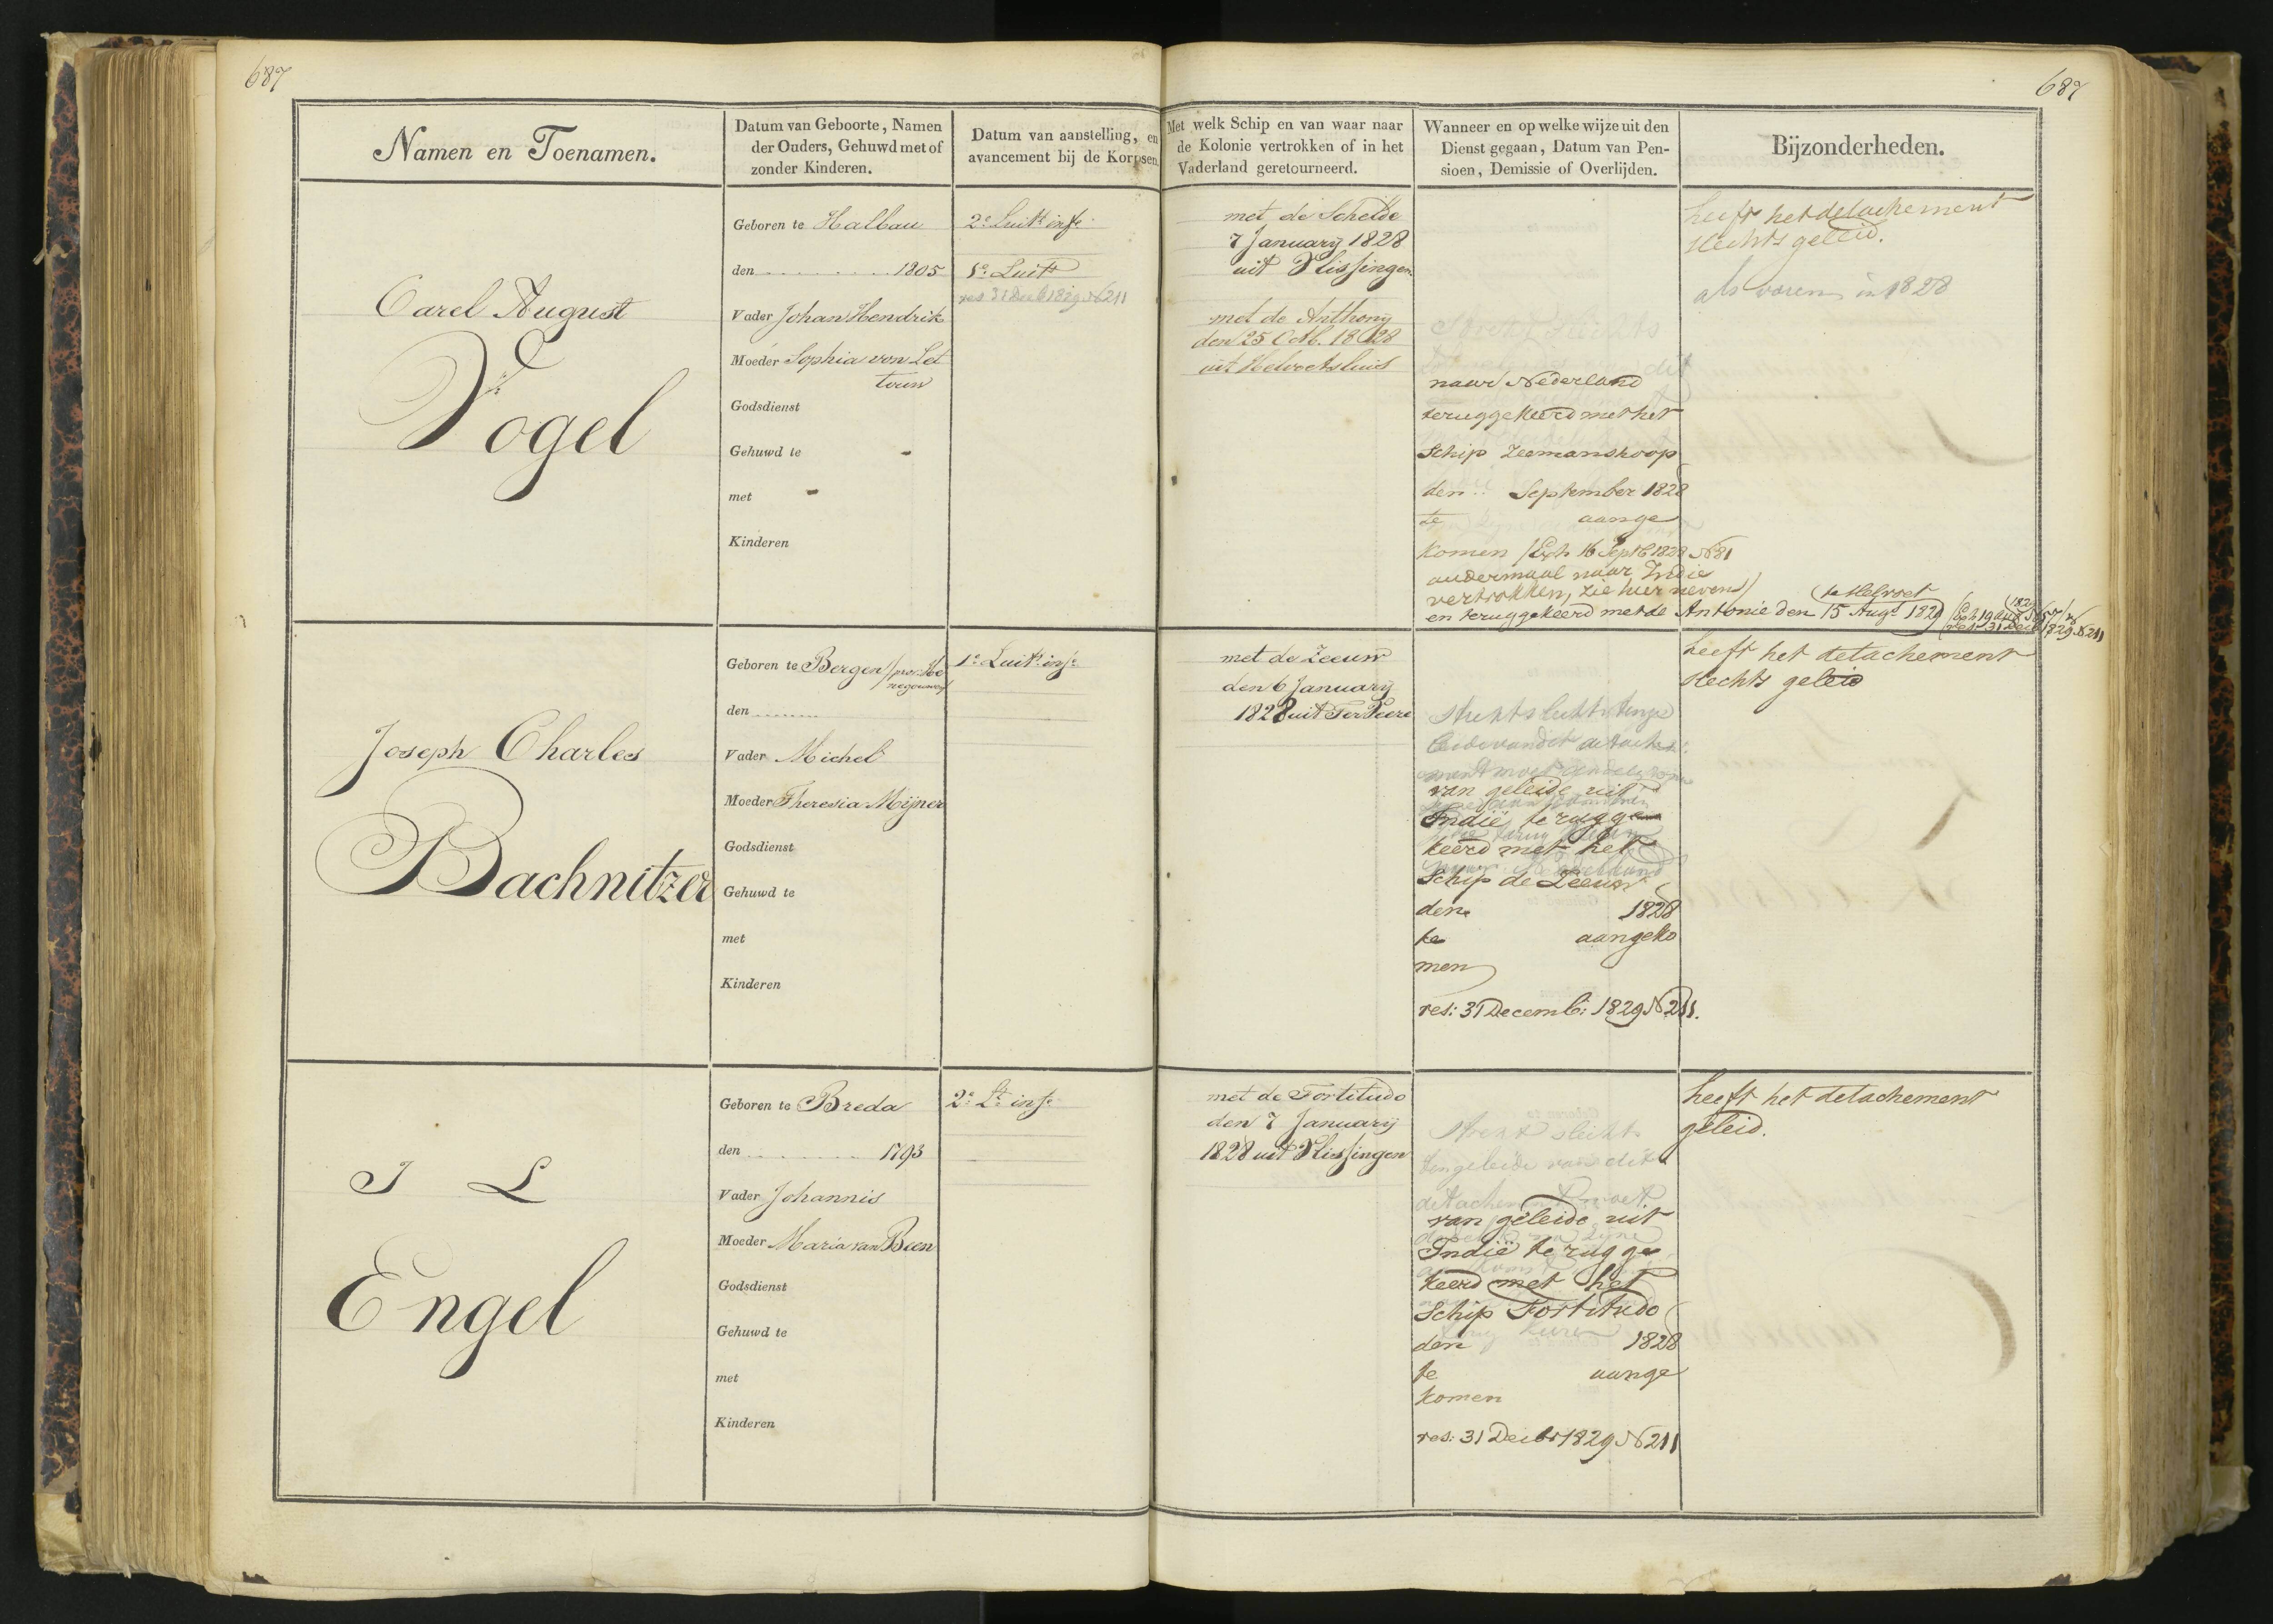 687
687
Namen en Toenamen.
Datum van Geboorte, Namen
der Ouders, Gehuwd met of
zonder Kinderen.
Datum van aanstelling, en
avancement bij de Korpsen.
Met welk Schip en van waar naar
de Kolonie vertrokken of in het
Vaderland geretourneerd.
Wanneer en op welke wijze uit den
Dienst gegaan, Datum van Pen-
sioen, Demissie of Overlijden.
Bijzonderheden.
Carel August
Vogel
Geboren te Halbau
den 1805
Vader Johan Hendrik
Moeder Sophia von Let
town
Godsdienst
Gehuwd te -
met -
Kinderen
2e Luitt infe
1e Luitt
res. 31 Decb 1829 N 211
met de Schelde
7 January 1828
uit Vlissingen
met de Anthony
den 25 Octb. 1828
uit Helvoetsluis
naar Nederland
teruggekeerd met het
Schip Zeemanshoop
den .. September 1828
te aange
komen (Exh 16 Septb 1828 N 81
andermaal naar Indie
vertrokken, zie hier nevens)
en teruggekeerd met de Antonie den 15 Augt 1829
(te Helvoet
res 31 Decb 1829 N 211
heeft het detachement
slechts geleid.
als voren in 1828
Joseph Charles
Bachnitzer
Geboren te Bergen (prov: He
negouwen)
den
Vader Michel
Moeder Theresia Mijner
Godsdienst
Gehuwd te
met
Kinderen
1e Luitt infe
met de Zeeuw
den 6 January
1828 uit Ter Veere
van geleide uit
Indië terugge
keerd met het
Schip de Zeeuw
den 1828
te aangeko
men
res: 31 Decemb: 1829 N 211.
heeft het detachement
slechts geleid
J L
Engel
Geboren te Breda
den 1793
Vader Johannis
Moeder Maria van Been
Godsdienst
Gehuwd te
met
Kinderen
2e Lt infe
met de Fortitudo
den 7 January
1828 uit Vlissingen
strekt slechts
ten geleide van dit
detachement moet
van geleide uit
Indië terugge
keerd met het
Schip Fortitudo
den 1828
te aange
komen
res: 31 Decbr 1829 N 211
heeft het detachement
geleid.